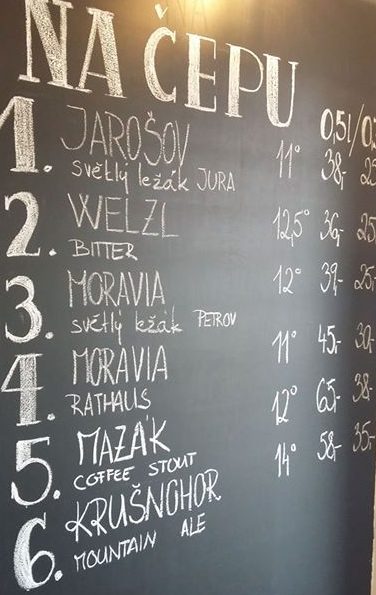 NA ČEPU
0,5l/0,
1. JAROŠOV 11° 38,- 25
světlý ležák JURA
2. WELZL 12,5° 36,- 25
BITTER
3. MORAVIA 12° 39,- 25,-
světlý ležák PETROV
4. MORAVIA 11° 45,- 30,-
RATHAUS
5. MAZÁK 12° 65,- 38,-
COFFEE STOUT
6. KRUŠNOHOR 14° 58,- 35,-
MOUNTAIN ALE